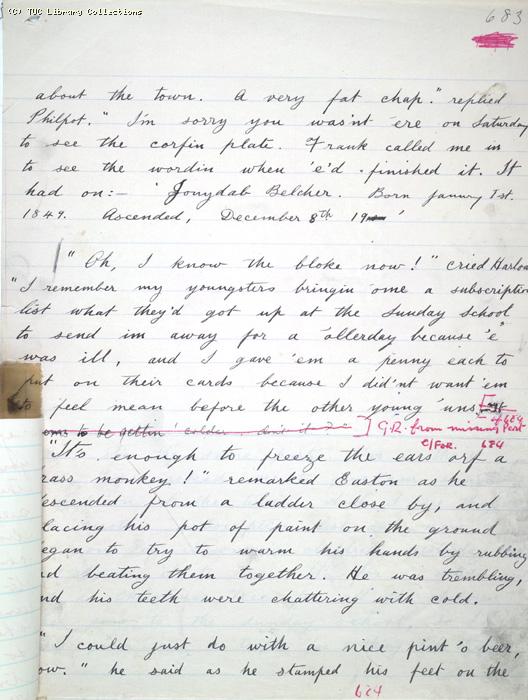 (C) TUC Library Collections
683
about the town. A very fat chap." replied
Philpot. "I'm sorry you was'nt 'ere on Saturday
to see the corfin plate. Frank called me in
to see the wordin when 'e'd finished it. It
had on:- 'Jonydab Belcher. Born January 1st.
1849. Ascended, December 8th 19
"Oh, I know the bloke now!" cried Harlow
"I remember my youngsters bringin 'ome a subscription
list what they'd got up at the Sunday School
to send im away for a 'ollerday because 'e
was ill, and I gave 'em a penny each to
put on their cards because I did'nt want 'em
to feel mean before the other young 'uns
to be gettin' colder don't it?"] G.R. from missing part
684
C/For. 684
"It's enough to freeze the ears orf a
rass monkey!" remarked Easton as he
escended from a ladder close by, and
lacing his pot of paint on the ground
egan to try to warm his hands by rubbing
nd beating them together. He was trembling,
nd his teeth were chattering with cold.
"I could just do with a nice pint 'o beer,
ow." he said as he stamped his feet on the
684